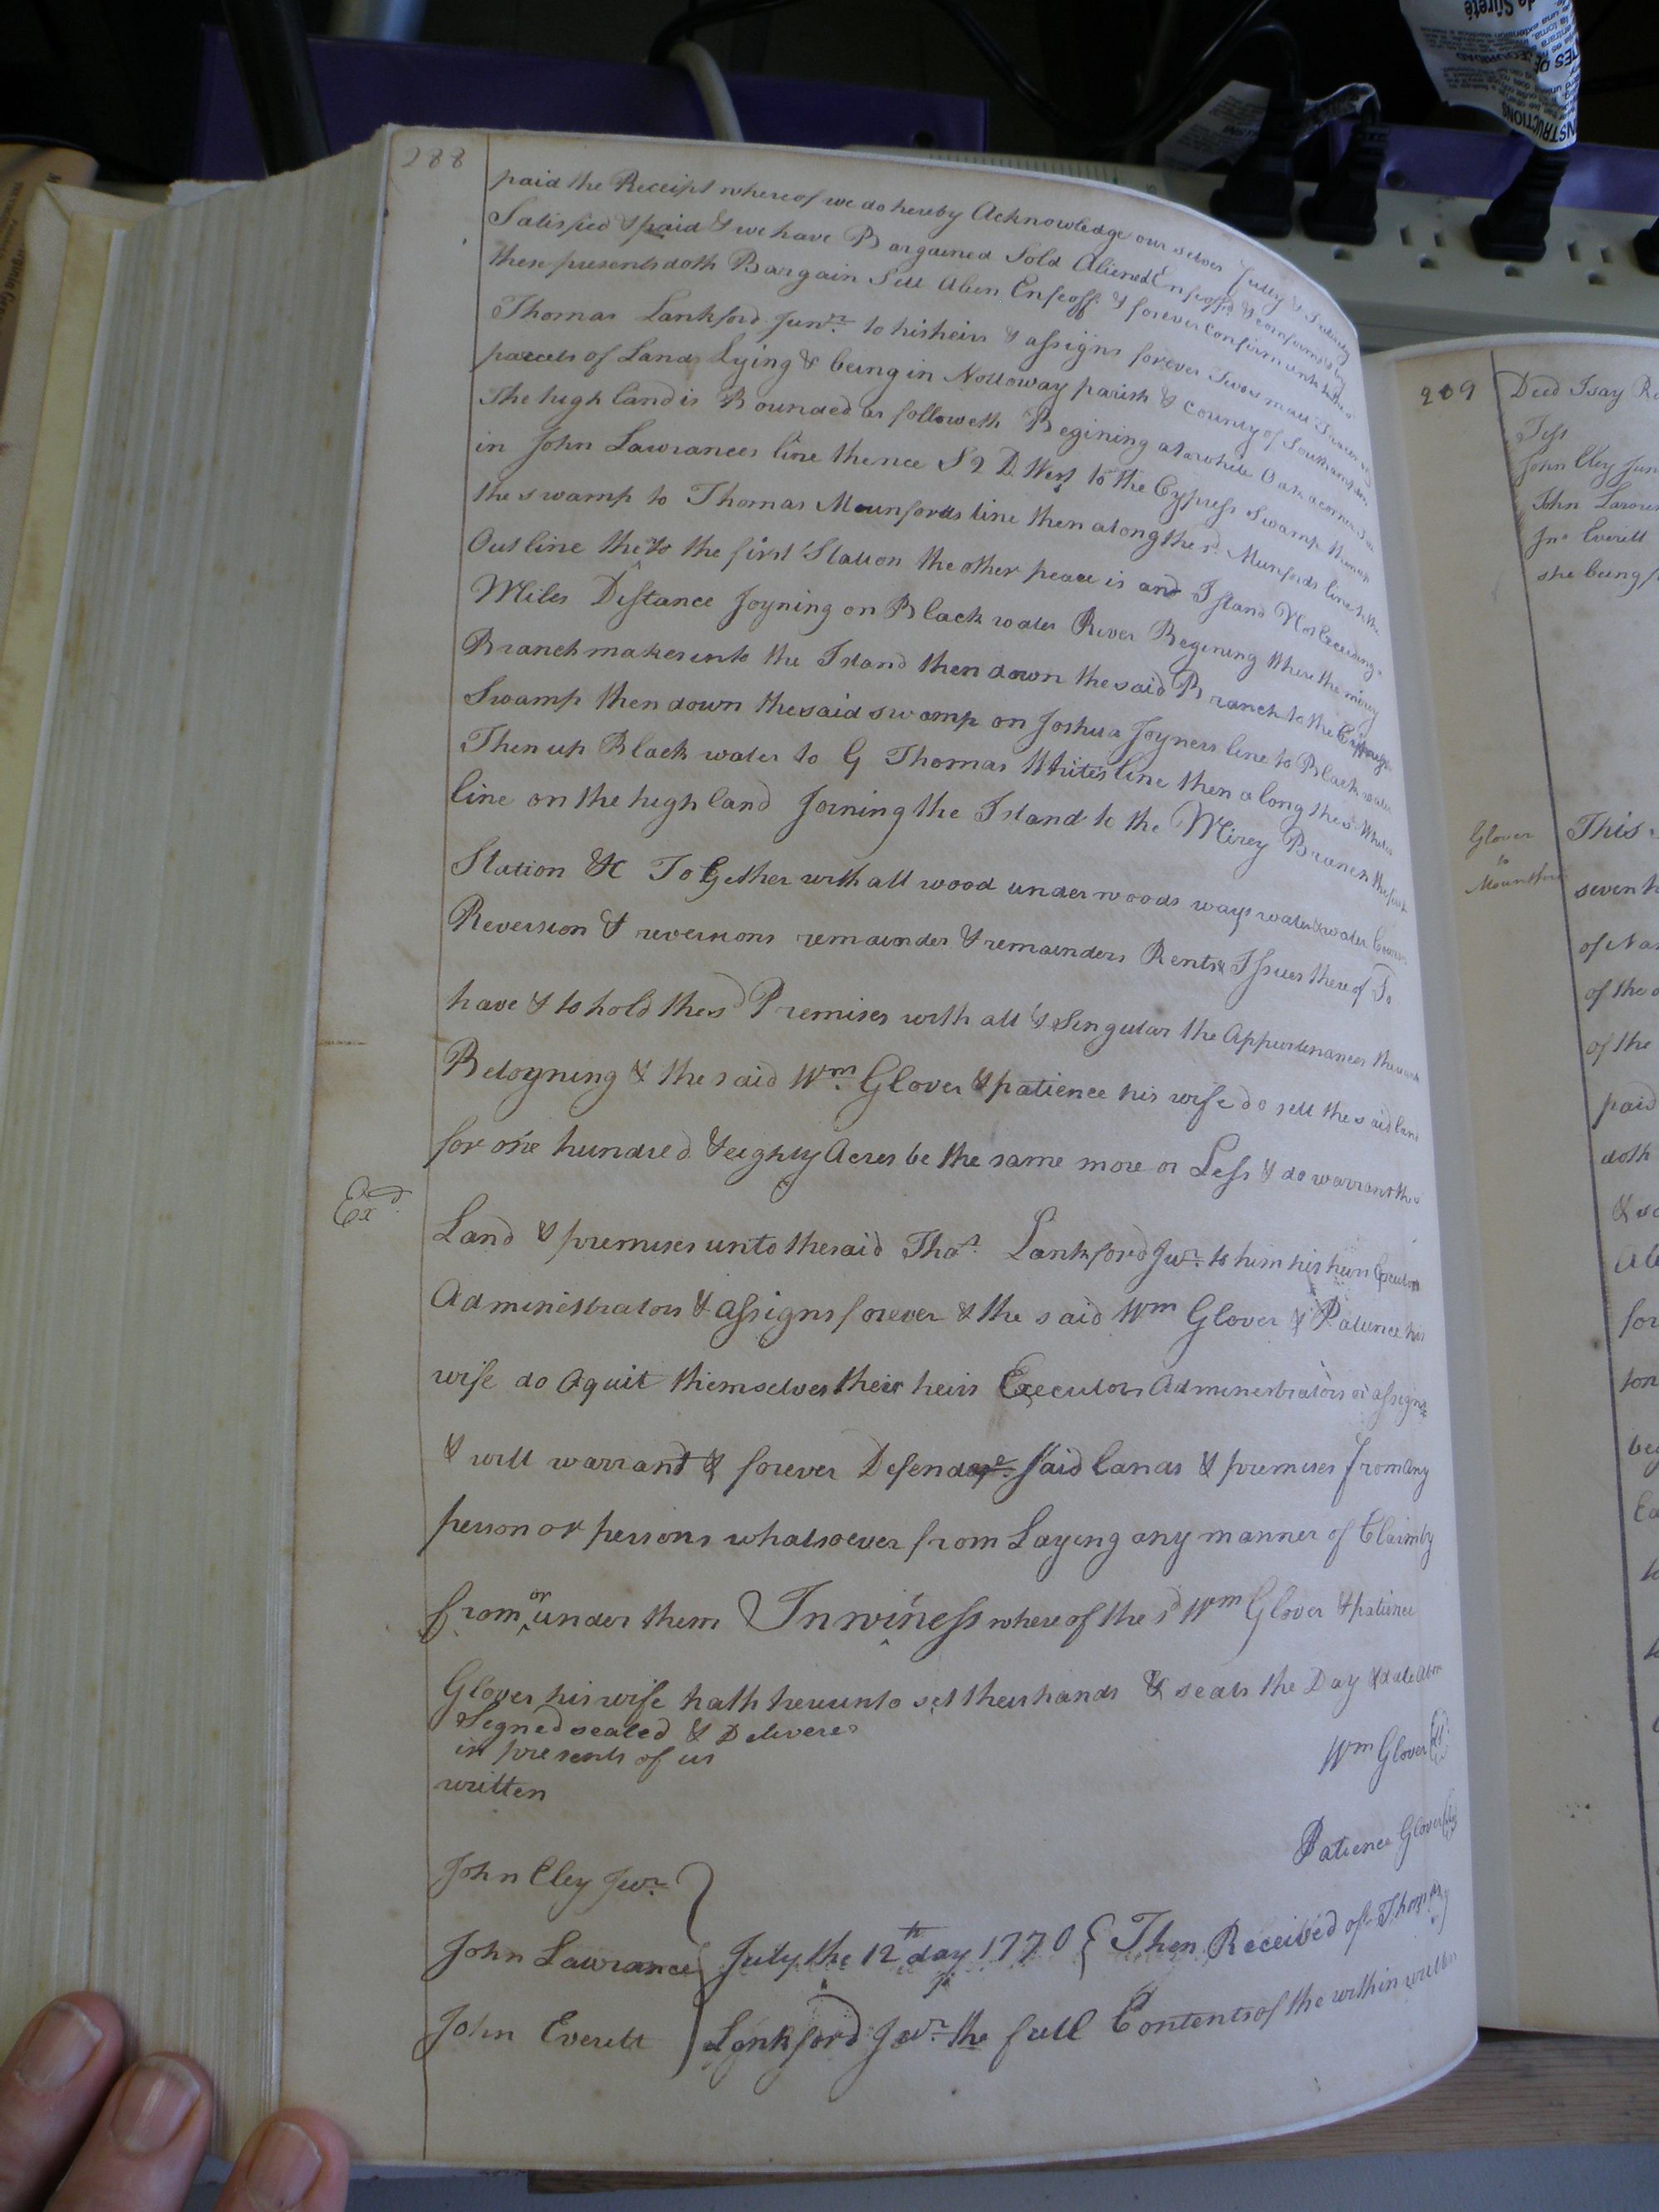 288
paid the Receipt whereof we do hereby Acknowledge our selves fully &
Satisfied & paid & we have Bargained Sold Aliened Enfeoffd & confirmd & by
these presents doth Bargain Sell Alien Enfeoff & forever Confirm unto
Thomas Lankford Junr. to his heirs & assigns forever Two small
parcels of Lands Lying & being in Nottoway parish & County of Southampton
The high land is Bounded as followeth Begining at a white Oak a corner
in John Lawrances line thence S 2 D West to the Cypress Swamp
the swamp to Thomas Mounfords line then along the sd. Munfords line to the
Out line the to the first Station the other peace is and Island Not Exceeding
Miles Distance Joyning on Black water River Begining where the miry
Branch makes into the Island then down the said Branch to the Cypress
Swamp then down the said swamp on Joshua Joyners line to Black water
Then up Black water to G Thomas Whites line then along the sd Whites
line on the high land Joining the Island to the Mirey Branch the first
Station &c ToGether with all wood under woods ways water & water Courses
Reversion & reversions remainder & remainders Rents & Issues there of To
have & to hold the sd Premises with all & Singular the Appurtenances
Beloyning & the said Wm. Glover & patience his wife do sell the said land
for one hundred & eighty Acres be the same more or Less & do warrant the
Exd.
Land & premises unto the said Thos. Lankford Junr. to him his heirs Executors
Administrators & assigns forever & the said Wm Glover & Patience his
wife do Aquit themselves their heirs Executors Administrators or assigns
& will warrant & forever Defend said lands & premises from any
person or persons whatsoever from Laying any manner of Claim by
from or under them In witness where of the sd Wm Glover & patience
Glover his wife hath hereunto set their hands & seals the Day & date above
Signed sealed & Delivered
in presents of us
written
Wm Glover
Patience Glover
John Eley Junr.
John Lawrance July the 12th day 1770 Then Received of Thomas
John Everitt Lankford Junr. the full Contents of the within
209
Deed Isay
Tess
John Eley Jun
John
Jno Everitt
she being
Glover
to
Mountfort
This
seven
of Na
of the
of the
paid
doth
for